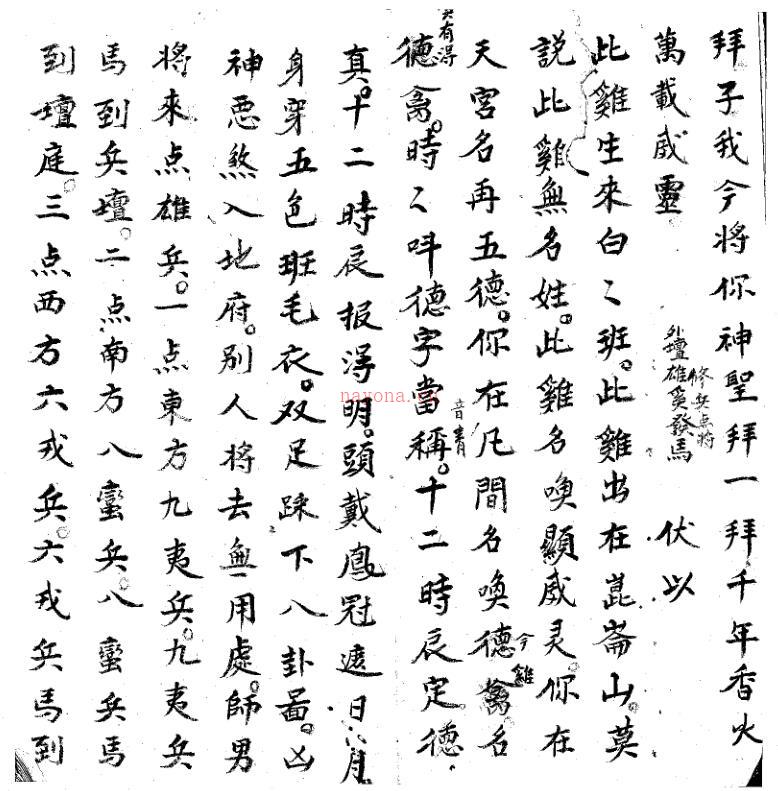 拜子我今将你神聖拜一拜千年香火
萬載威靈
外壇雄兵發馬
修兵点将
伏以
此雞生來白〻班。此雞出在崑崙山。莫
説此雞無名姓。此雞名喚顯威灵。你在
天宮名再五德。你在凡間名喚德禽名
今雞
又有得
德禽。時〻呌德字當稱。十二時辰定德
音青
真。十二時辰报得明。頭戴鳳冠遮日月
身穿五色班毛衣。双足踩下八卦啚。凶
神恶煞入地府。别人将去無用處。師男
将來点雄兵。一点東方九夷兵。九夷兵
馬到兵壇。二点南方八蠻兵。八蠻兵馬
到壇庭。三点西方六戎兵。六戎兵馬到